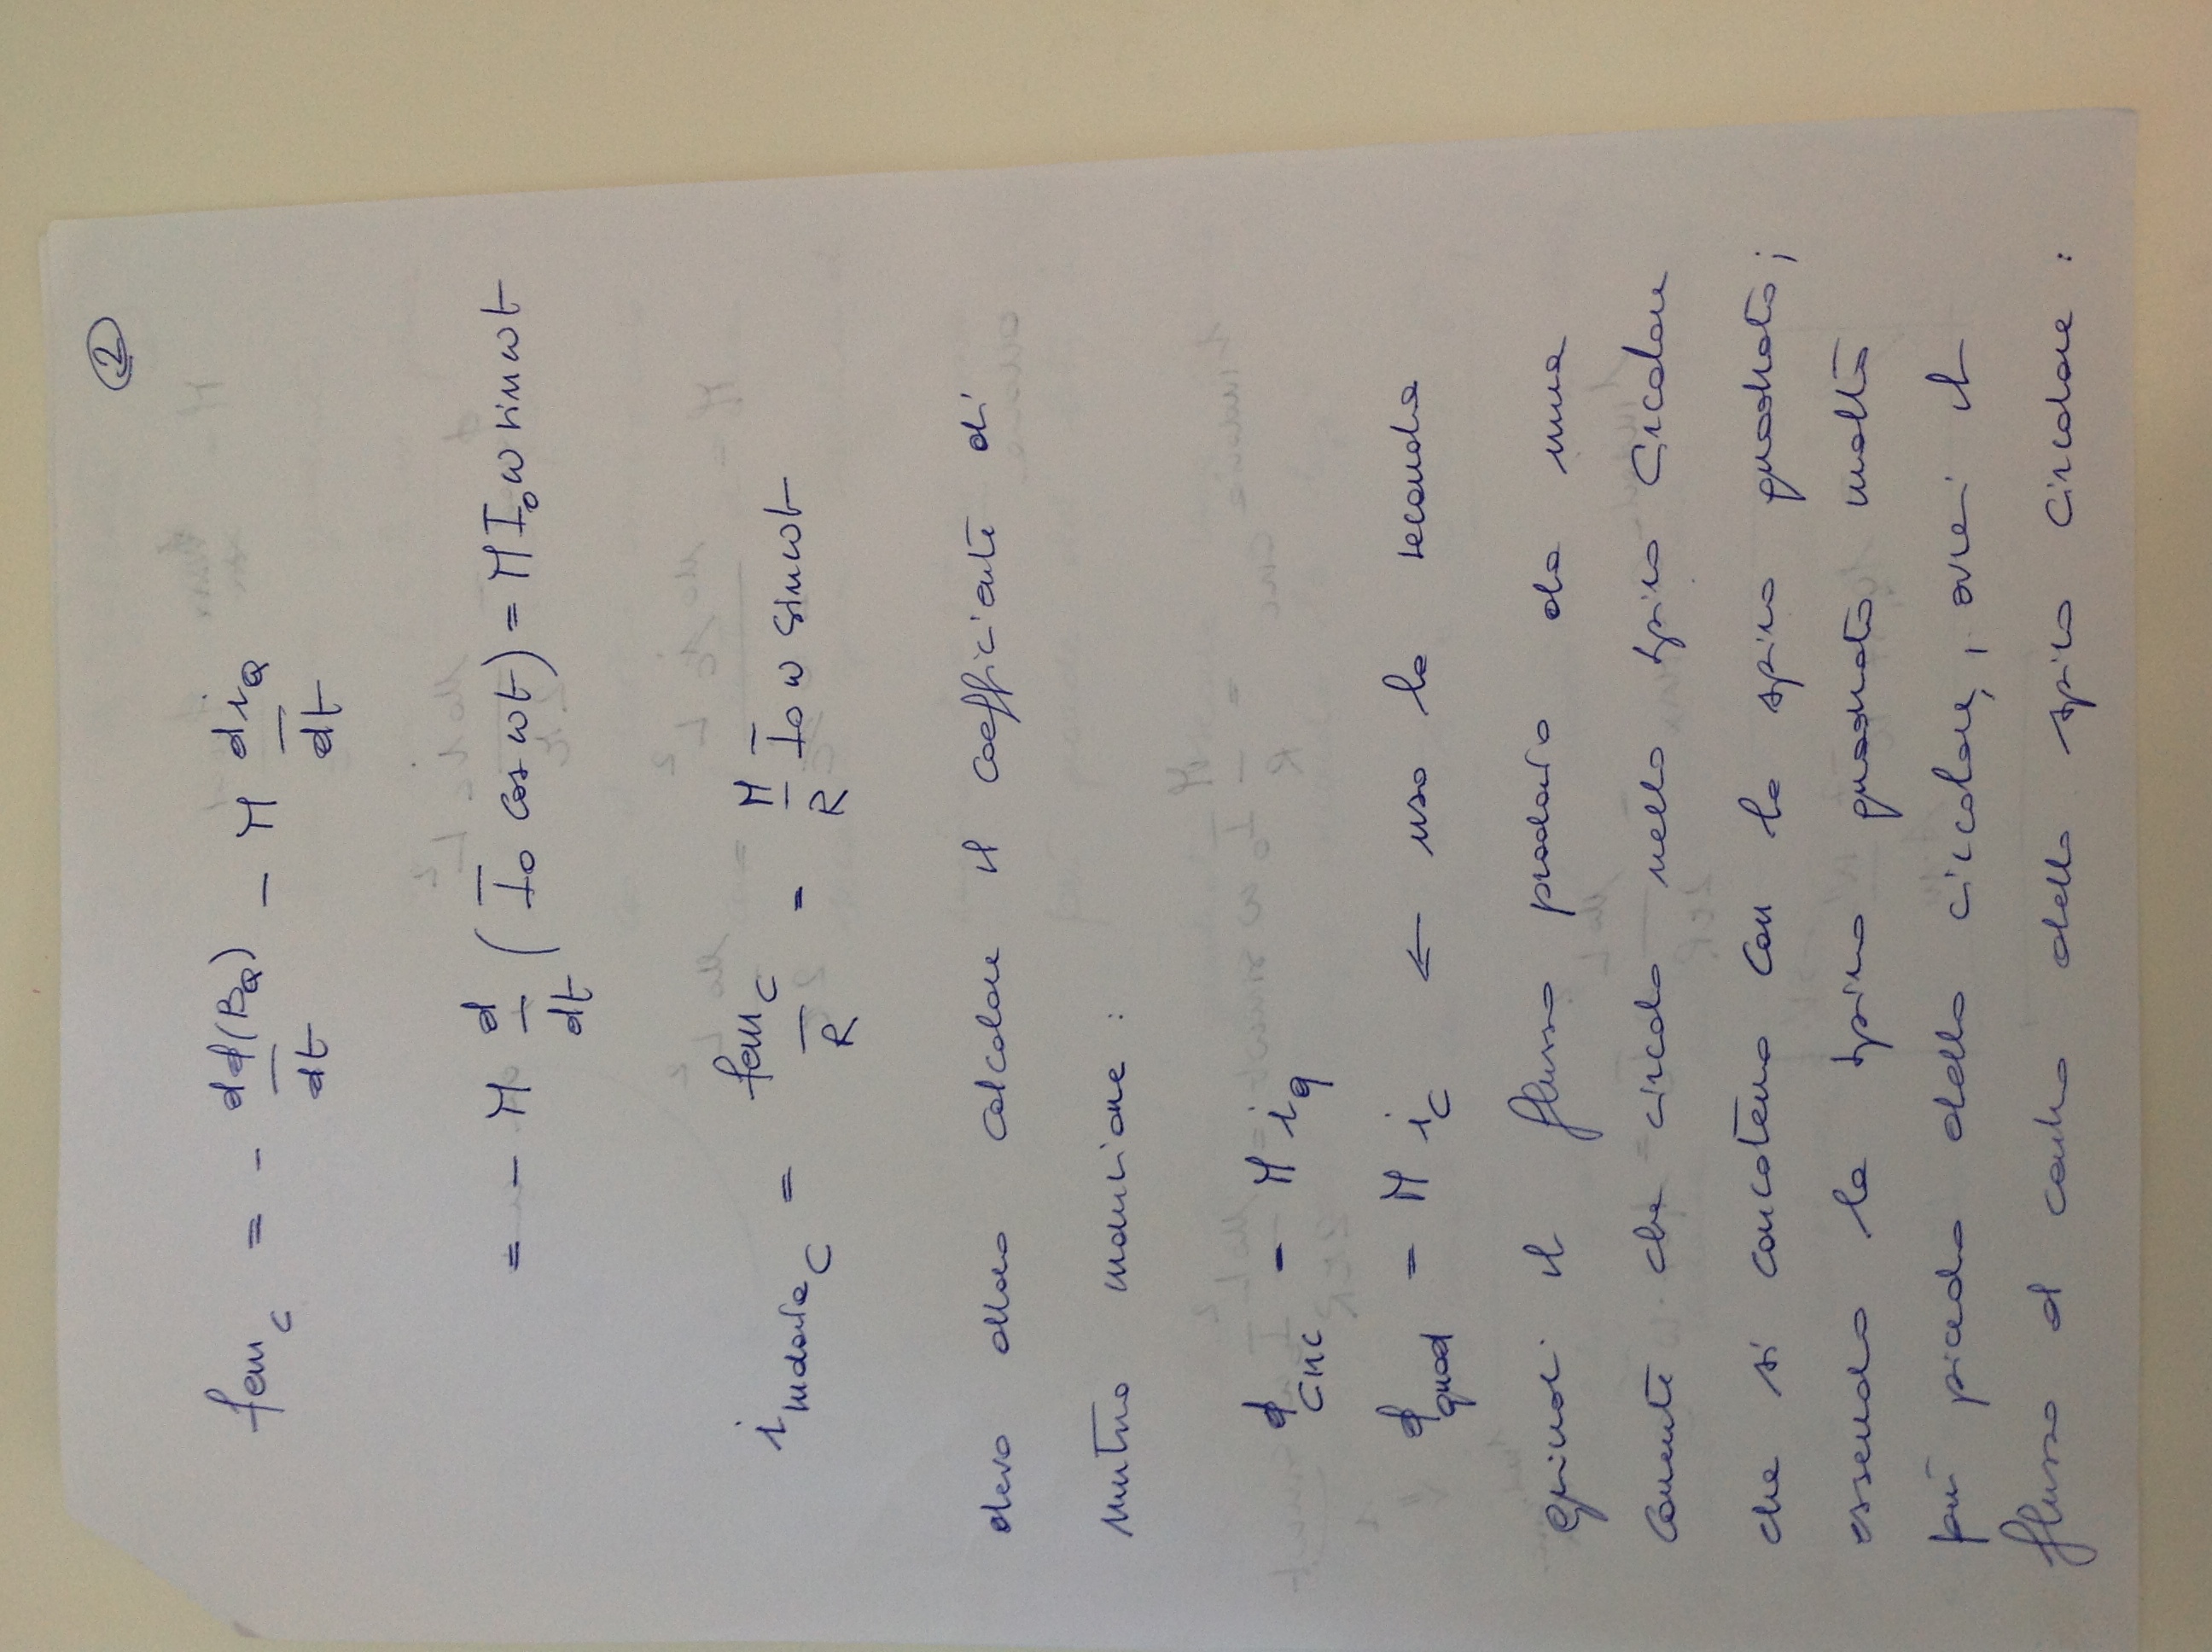 2
fem_C = - dΦ(B_Q)/dt - M di_Q/dt
= - M d/dt ( I_0 cos ωt ) = M I_0 ω sin ωt
i_indotta_C = fem_C / R = M/R I_0 ω sin ωt
devo allora calcolare il coefficiente di
mutua induzione :
Φ_circ = M i_q
Φ_quad = M i_C ← uso la seconda
quindi il flusso prodotto da una
corrente che circola nella spira circolare
che si concatena con la spira quadrata ;
essendo la spira quadrata molto
più piccola della circolare, , avrei il
flusso al centro della spira circolare :